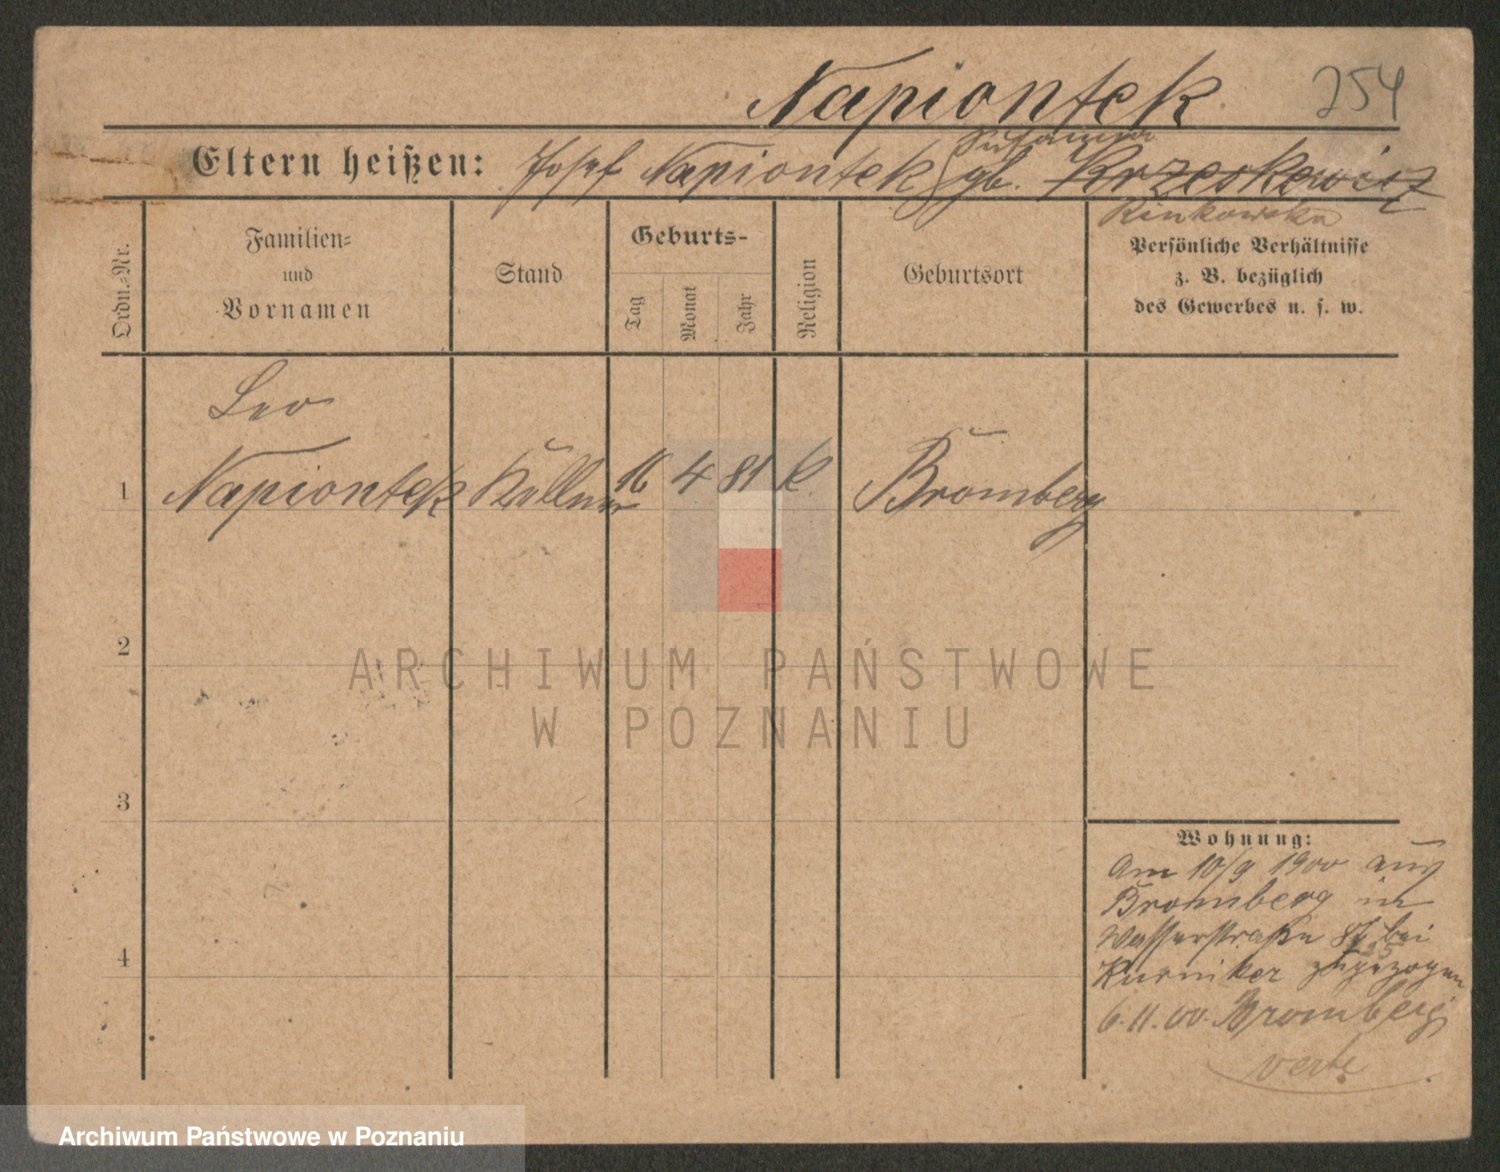 Napiontek 254
Eltern heißen: Josef Napiontek gb. Susanna Krzeskewicz
Rinkowska
Ordn.-Nr.
Familien-
und
Vornamen
Stand
Geburts-
Tag
Monat
Jahr
Religion
Geburtsort
Persönliche Verhältnisse
z. B. bezüglich
des Gewerbes u. s. w.
Leo
1 Napiontek Kellner 16 4 81 k. Bromberg
2
ARCHIWUM PAŃSTWOWE
W POZNANIU
3
Wohnung:
Am 10/9 1900 aus
Bromberg in
Wasserstraße bei
Kurniker zugezogen
6.11.00. Bromberg
verte
4
Archiwum Państwowe w Poznaniu